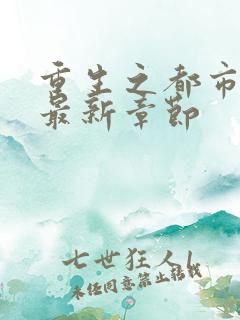 重生之都市
最新章節
七世狂人l
未经同意禁止转载